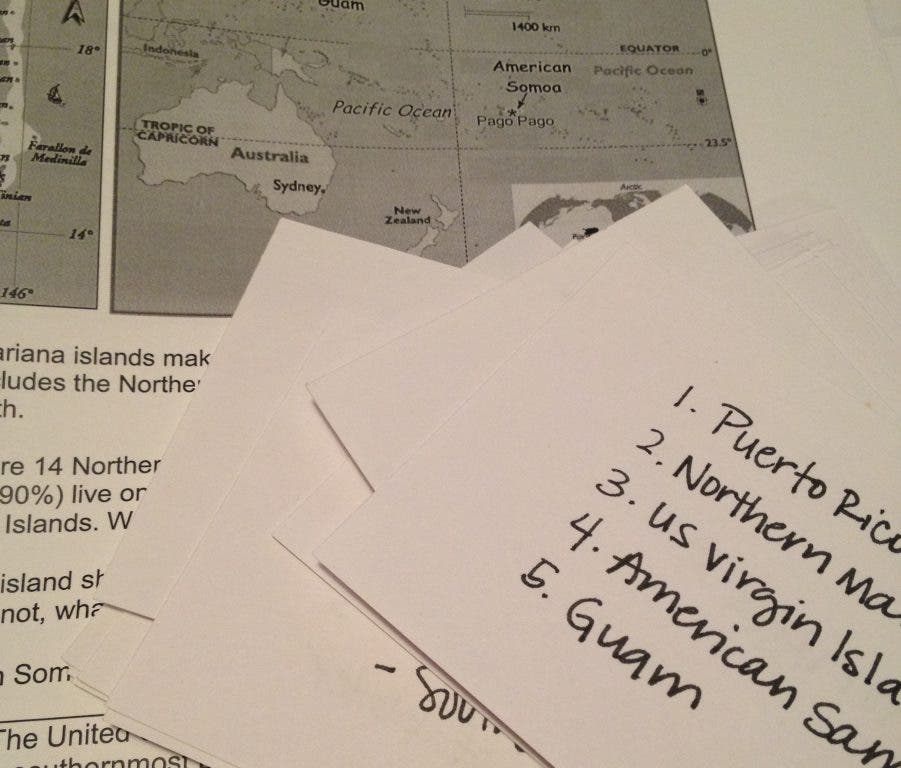 Guam
1400 km
18°
Indonesia
EQUATOR 0°
American
Somoa
Pacific Ocean
Pacific Ocean
Pago Pago
TROPIC OF
CAPRICORN
23.5°
Farallon de
Medinilla
Australia
Sydney
New
Zealand
Arctic
14°
146°
ariana islands mak
cludes the Norther
th.
re 14 Norther
90%) live on
Islands. W
island sh
not, wha
Som
The United
southernmost
1. Puerto Rico
2. Northern Ma
3. US Virgin Isla
4. American Sam
5. Guam